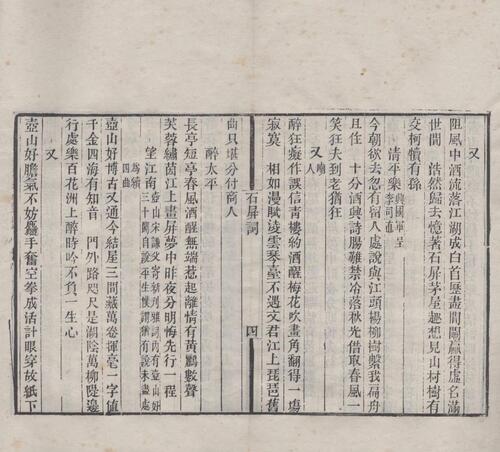 又
阻風中酒流落江湖成白首歷盡間關贏得虛名滿
世間　浩然歸去憶著石屏茅屋趣想見山村樹有
交柯犢有孫
清平樂 興國軍呈李司直
今朝欲去忽有留人處說與江頭楊柳樹繫我扁舟
且住　十分酒興詩腸難禁冷落秋光借取春風一
笑狂夫到老猶狂
又 嘲人
醉狂癡作誤信青樓約酒醒梅花吹畫角翻得一場
寂寞　相如漫賦凌雲琴臺不遇文君江上琵琶舊
石屏詞
四
曲只堪分付商人
醉太平
長亭短亭春風酒醒無端惹起離情有黃鸝數聲
芙蓉繡茵江上畫屏夢中昨夜分明悔先行一程
望江南 壺山宋謙父寄新刊雅詞內有壺山好三十闋自說平生僕謂猶有說未盡處為續四曲
壺山好博古又通今結屋三間藏萬卷揮毫一字值
千金四海有知音　門外路咫尺是湖陰萬柳隄邊
行處樂百花洲上醉時吟不負一生心
又
壺山好膽氣不妨麤手奮空拳成活計眼穿故紙下